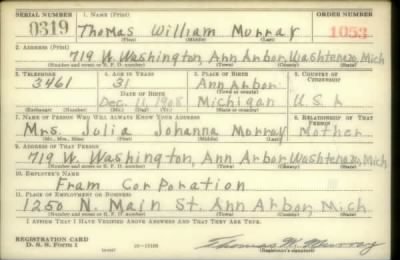 SERIAL NUMBER 1. NAME (Print) ORDER NUMBER
0319 Thomas William Murray 1053
(First) (Middle) (Last)
2. ADDRESS (Print)
719 W. Washington, Ann Arbor, Washtenaw, Mich
(Number and street or R. F. D. number) (Town) (County) (State)
3. TELEPHONE 4. AGE IN YEARS 5. PLACE OF BIRTH 6. COUNTRY OF CITIZENSHIP
3461 31 Ann Arbor
DATE OF BIRTH (Town or county)
Dec. 11 1908 Michigan U.S.A
(Exchange) (Number) (Mo.) (Day) (Yr.) (State or country)
7. NAME OF PERSON WHO WILL ALWAYS KNOW YOUR ADDRESS 8. RELATIONSHIP OF THAT PERSON
Mrs. Julia Johanna Murray Mother
(Mr., Mrs., Miss) (First) (Middle) (Last)
9. ADDRESS OF THAT PERSON
719 W. Washington, Ann Arbor Washtenaw, Mich
(Number and street or R. F. D. number) (Town) (County) (State)
10. EMPLOYER'S NAME
Fram Corporation
11. PLACE OF EMPLOYMENT OR BUSINESS
1250 N. Main St. Ann Arbor, Mich.
(Number and street or R. F. D. number) (Town) (County) (State)
I AFFIRM THAT I HAVE VERIFIED ABOVE ANSWERS AND THAT THEY ARE TRUE.
REGISTRATION CARD
D. S. S. Form 1 Thomas W. Murray
(Registrant's signature)